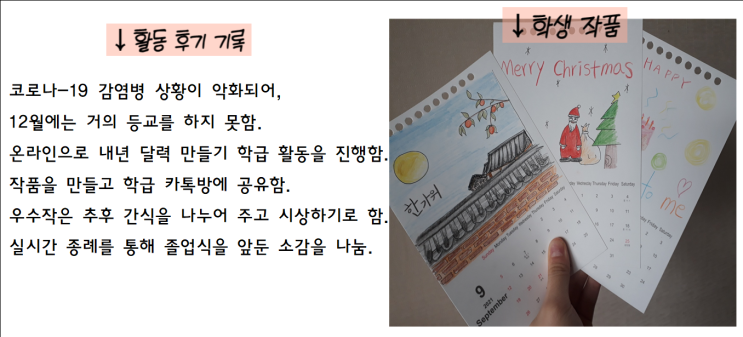 ↓ 활동 후기 기록
코로나-19 감염병 상황이 악화되어,
12월에는 거의 등교를 하지 못함.
온라인으로 내년 달력 만들기 학급 활동을 진행함.
작품을 만들고 학급 카톡방에 공유함.
우수작은 추후 간식을 나누어 주고 시상하기로 함.
실시간 종례를 통해 졸업식을 앞둔 소감을 나눔.
↓ 학생 작품
Merry Christmas
HAPPY
to me
한가위
Sunday Monday Tuesday Wednesday Thursday Friday Saturday
9
2021
September